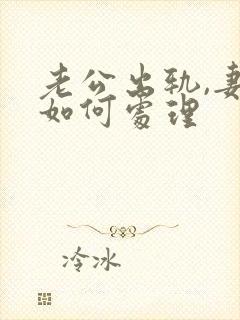 老公出轨,妻
如何处理
冷冰